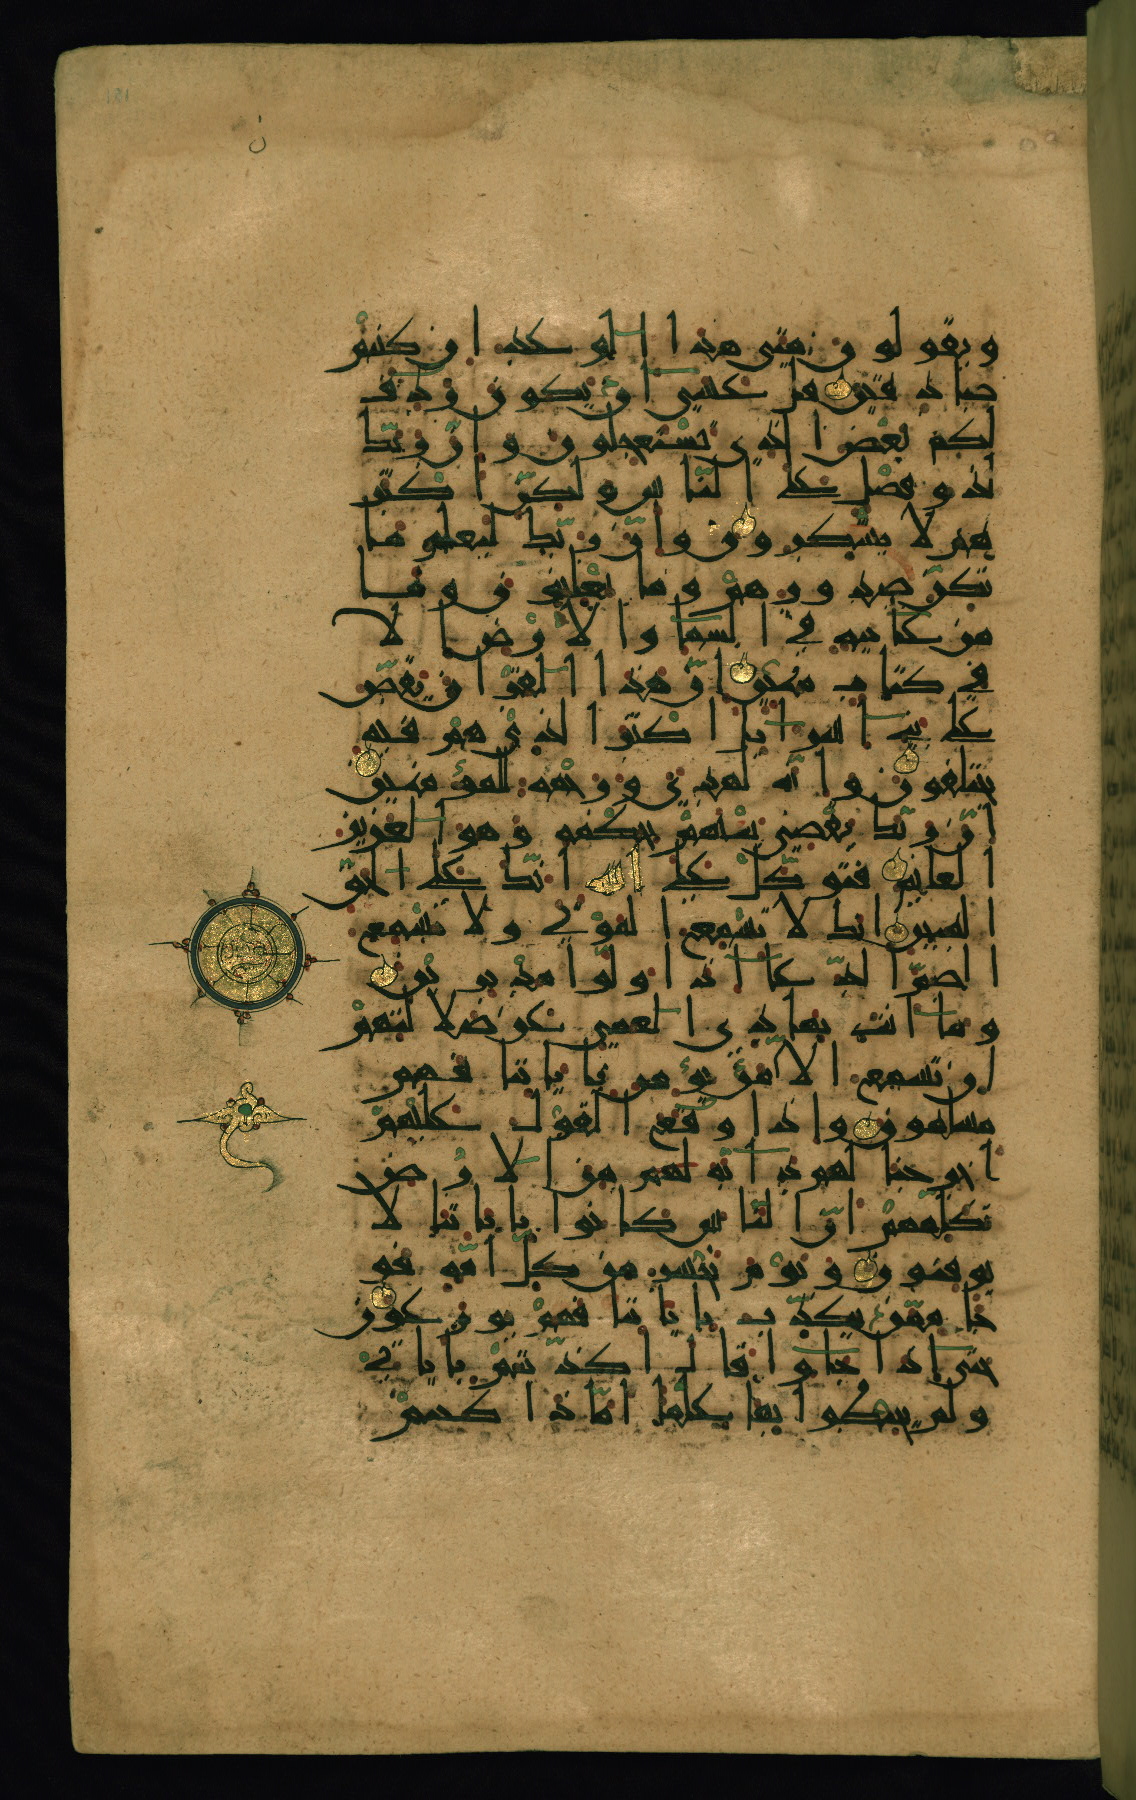 ويقولون متى هذا الوعد ان كنتم
صادقين قل عسى ان يكون ردف
لكم بعض الذي تستعجلون وان ربك
لذو فضل على الناس ولكن اكثر
هم لا يشكرون وان ربك ليعلم ما
تكن صدورهم وما يعلنون وما
من غايبه في السما والارض الا
في كتاب مبين ان هذا القران يقص
على بني اسرايل اكثر الذي هم فيه
يختلفون وانه لهدى ورحمه للمؤمنين
ان ربك يقضي بينهم بحكمه وهو العزيز
العليم فتوكل على الله انك على الحق
المبين انك لا تسمع الموتى ولا تسمع
الصم الدعا اذا ولوا مدبرين
وما انت بهادي العمي عن ضلالتهم
ان تسمع الا من يؤمن باياتنا فهم
مسلمون واذا وقع القول عليهم
اخرجنا لهم دابه لهم من الارض
تكلمهم ان الناس كانوا باياتنا لا
يوقنون ويوم نحشر من كل امه فو
جا ممن يكذب باياتنا فهم يوزعون
حتى اذا جاوا قال اكذبتم باياتي
ولم تحيطوا بها علما اماذا كنتم